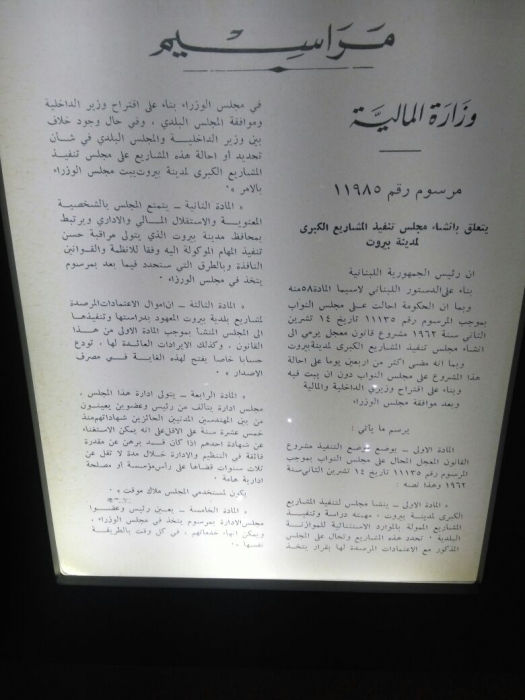 مَرَاسِيم
وزَارَة المالِيَّة
مرسوم رقم ١١٩٨٥
يتعلق بانشاء مجلس تنفيذ المشاريع الكبرى
لمدينة بيروت
ان رئيس الجمهورية اللبنانية
بناء على الدستور اللبناني لاسيما المادة ٥٨ منه
وبما ان الحكومة احالت على مجلس النواب
بموجب المرسوم رقم ١١١٣٥ تاريخ ١٤ تشرين
الثاني سنة ١٩٦٢ مشروع قانون معجل يرمي الى
انشاء مجلس تنفيذ المشاريع الكبرى لمدينة بيروت
وبما انه مضى اكثر من اربعين يوما على احالة
هذا المشروع على مجلس النواب دون ان يبت فيه
وبناء على اقتراح وزيري الداخلية والمالية
وبعد موافقة مجلس الوزراء
يرسم ما يأتي :
المادة الاولى – يوضع موضع التنفيذ مشروع
القانون المعجل المحال على مجلس النواب بموجب
المرسوم رقم ١١١٣٥ تاريخ ١٤ تشرين الثاني سنة
١٩٦٢ وهذا نصه :
« المادة الاولى – ينشا مجلس لتنفيذ المشاريع
الكبرى لمدينة بيروت ، مهمته دراسة وتنفيذ
المشاريع الممولة بالموارد الاستثنائية للموازنة
البلدية . تحدد هذه المشاريع وتحال على المجلس
المذكور مع الاعتمادات المرصدة لها بقرار يتخذ
في مجلس الوزراء بناء على اقتراح وزير الداخلية
وموافقة المجلس البلدي ، وفي حال وجود خلاف
بين وزير الداخلية والمجلس البلدي في شأن
تحديد أو احالة هذه المشاريع على مجلس تنفيذ
المشاريع الكبرى لمدينة بيروت يبت مجلس الوزراء
بالامر » .
« المادة الثانية – يتمتع المجلس بالشخصية
المعنوية والاستقلال المالي والاداري ويرتبط
بمحافظ مدينة بيروت الذي يتولى مراقبة حسن
تنفيذ المهام الموكولة اليه وفقا للانظمة والقوانين
النافذة وبالطرق التي ستحدد فيما بعد بمرسوم
يتخذ في مجلس الوزراء .
« المادة الثالثة – ان اموال الاعتمادات المرصدة
لمشاريع بلدية بيروت المعهود بدراستها وتنفيذها
الى المجلس المنشأ بموجب المادة الاولى من هذا
القانون ، وكذلك الايرادات العائدة لها ، تودع
حسابا خاصا يفتح لهذه الغاية في مصرف
الاصدار » .
« المادة الرابعة – يتولى ادارة هذا المجلس ،
مجلس ادارة يتألف من رئيس وعضوين يعينون
من بين المهندسين المدنيين الحائزين شهاداتهم منذ
خمس عشرة سنة على الاقل على انه يمكن الاستغناء
عن شهادة احدهم اذا كان قد برهن عن مقدرة
فائقة في التنظيم والادارة خلال مدة لا تقل عن
ثلاث سنوات قضاها على رأس مؤسسة او مصلحة
ادارية عامة .
يكون لمستخدمي المجلس ملاك موقت » .
« المادة الخامسة – يعين رئيس وعضوا
مجلس الادارة بمرسوم يتخذ في مجلس الوزراء ،
ويمكن انهاء خدماتهم ، في كل وقت بالطريقة
نفسها » .